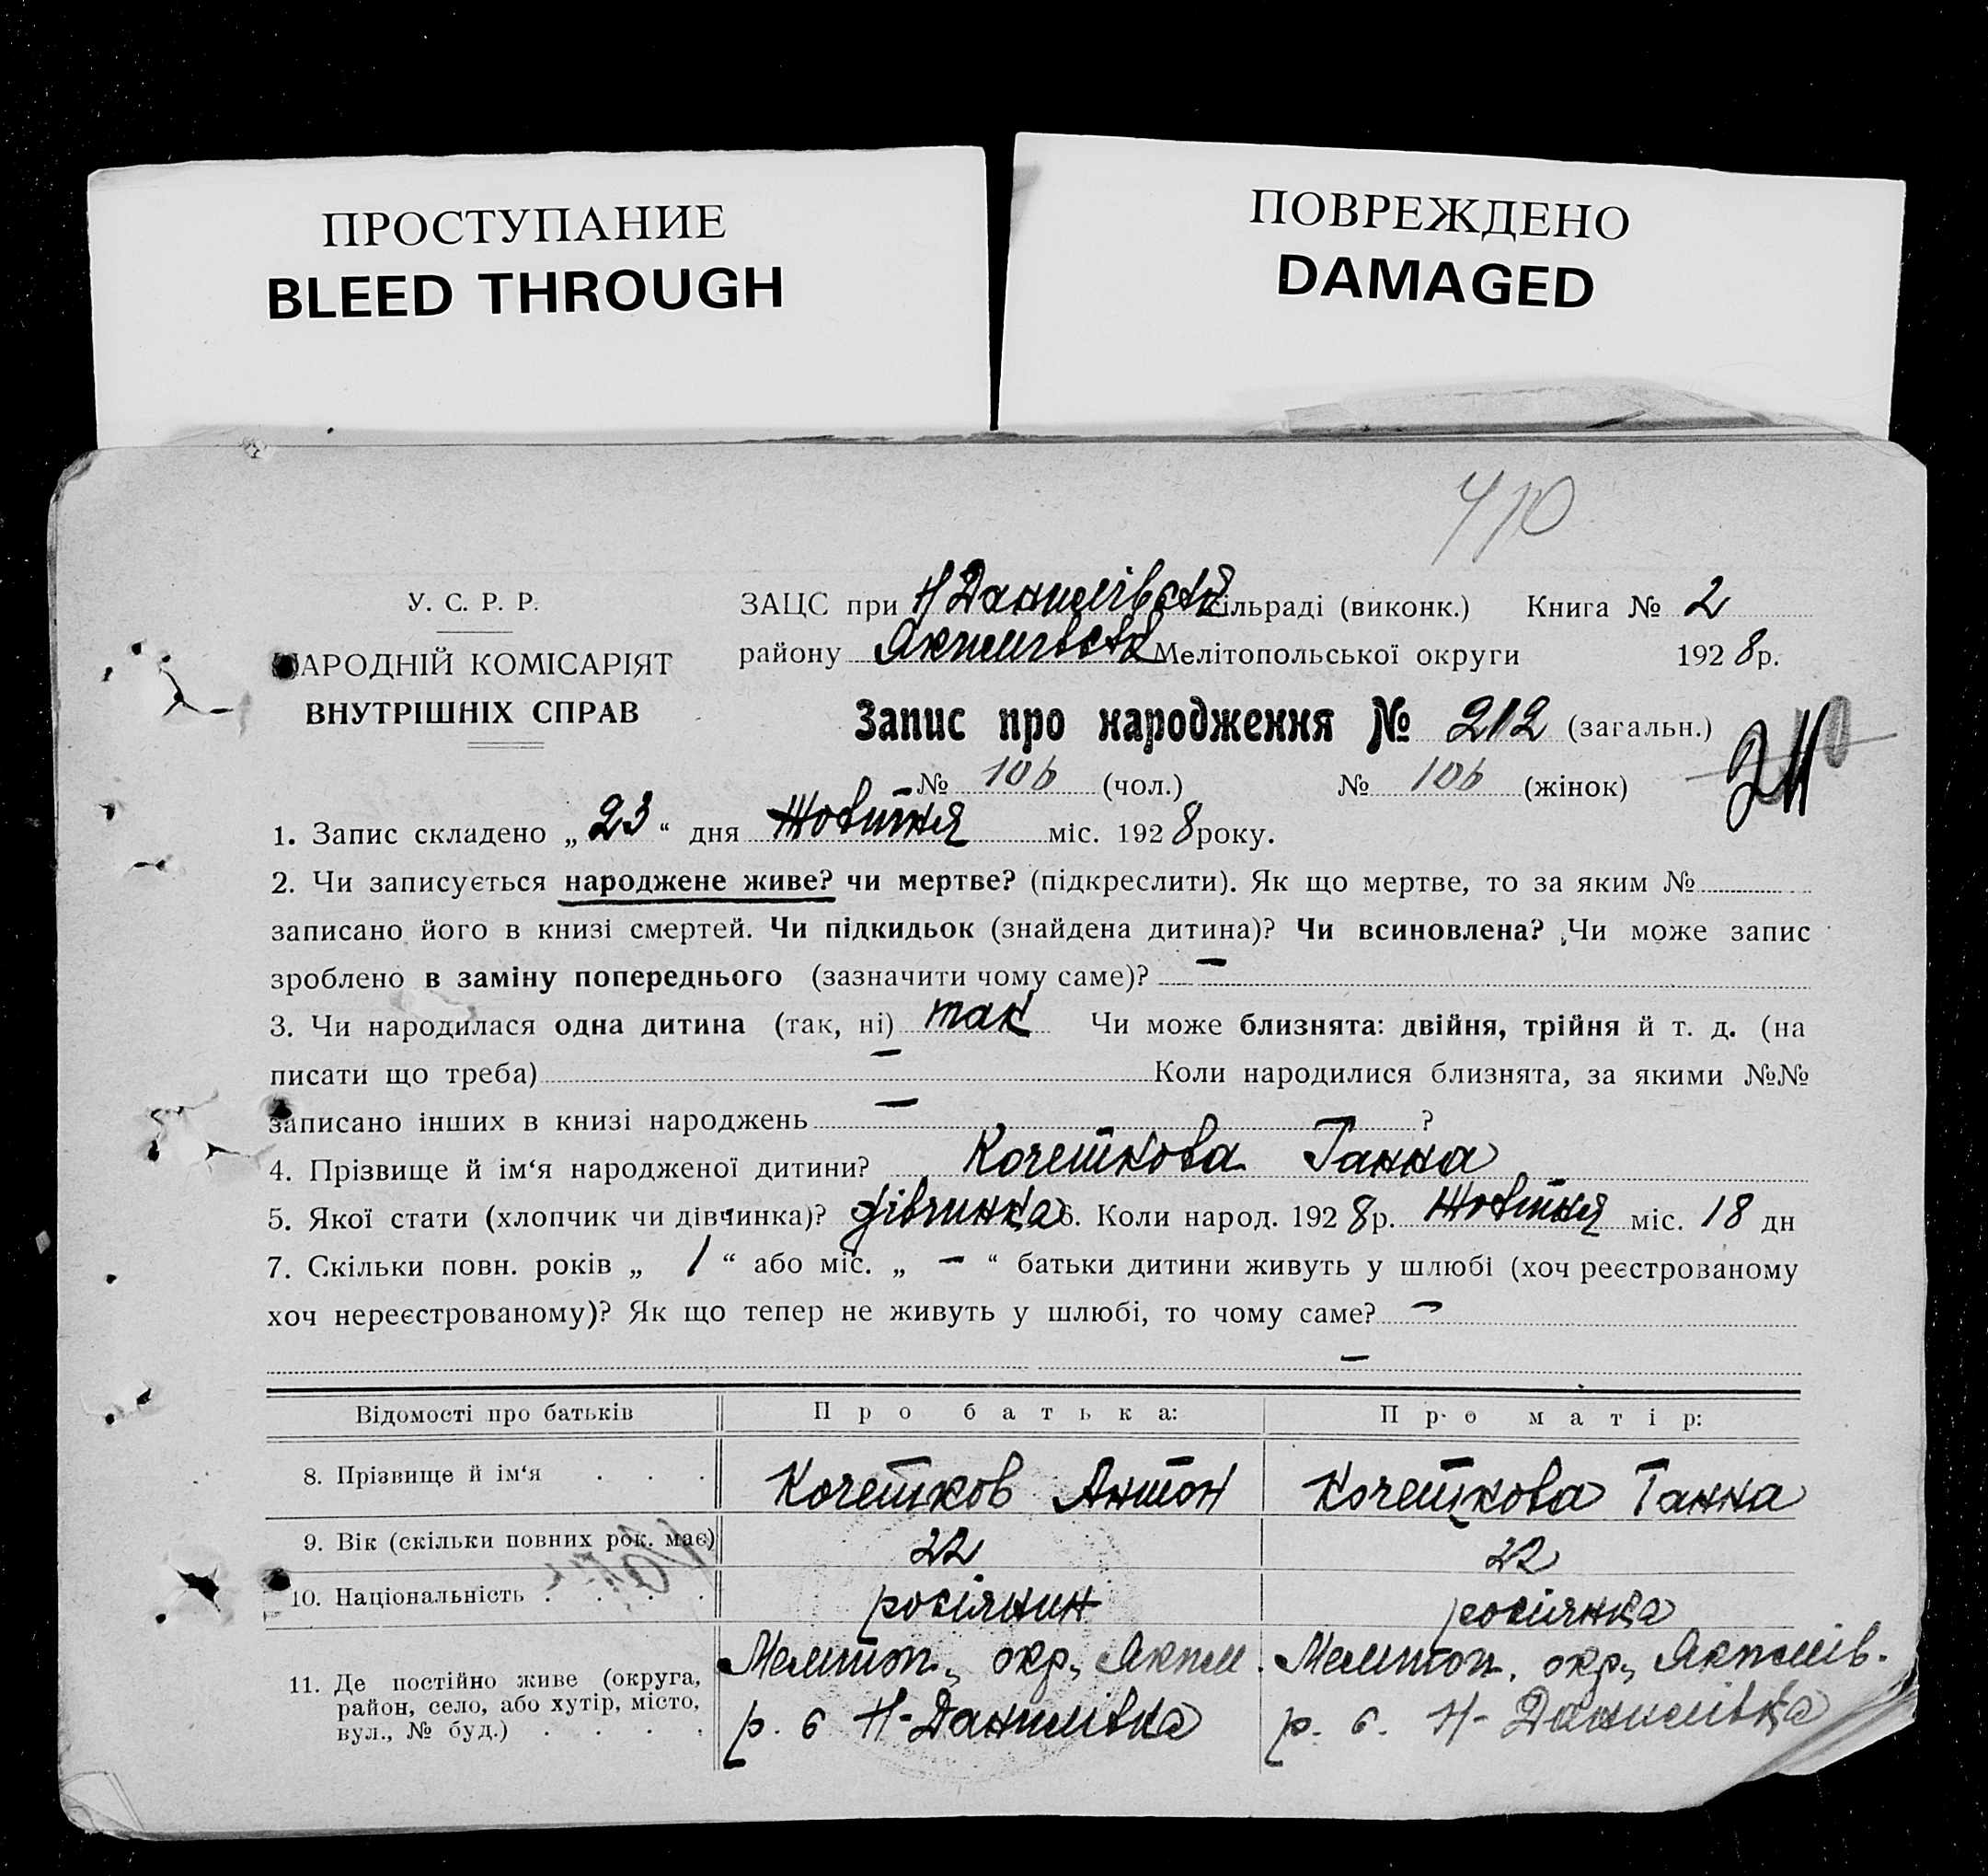 ПРОСТУПАНИЕ
BLEED THROUGH
ПОВРЕЖДЕНО
DAMAGED
410
У. С. Р. Р.
НАРОДНІЙ КОМІСАРІЯТ
ВНУТРІШНІХ СПРАВ
ЗАЦС при Н Данилівській сільраді (виконк.) Книга № 2
району Якимівськ Мелітопольської округи 1928 р.
Запис про народження № 212 (загальн.)
№ 106 (чол.) № 106 (жінок)
1. Запис складено „ 23 “ дня Жовтня міс. 1928 року.
2. Чи записується народжене живе? чи мертве? (підкреслити). Як що мертве, то за яким №
записано його в книзі смертей. Чи підкидьок (знайдена дитина)? Чи всиновлена? Чи може запис
зроблено в заміну попереднього (зазначити чому саме)? —
3. Чи народилася одна дитина (так, ні) так Чи може близнята: двійня, трійня й т. д. (на
писати що треба) — Коли народилися близнята, за якими №№
записано інших в книзі народжень — ?
4. Прізвище й ім‘я народженої дитини? Кочеткова Ганна
5. Якої стати (хлопчик чи дівчинка)? дівчинка 6. Коли народ. 1928 р. Жовтня міс. 18 дн
7. Скільки повн. років „ 1 “ або міс. „ — “ батьки дитини живуть у шлюбі (хоч реєстрованому
хоч нереєстрованому)? Як що тепер не живуть у шлюбі, то чому саме? —
—
Відомості про батьків Про батька: Про матір:
8. Прізвище й ім‘я . . . Кочетков Антон Кочеткова Ганна
9. Вік (скільки повних рок. має) 22 22
10. Національність . . . . росіянин росіянка
11. Де постійно живе (округа, район, село, або хутір, місто, вул., № буд.) . . . .
Мелитоп., окр., Яким.
р. с Н-Данилівка
Мелитоп. окр., Якимів.
р. с. Н-Данилівка